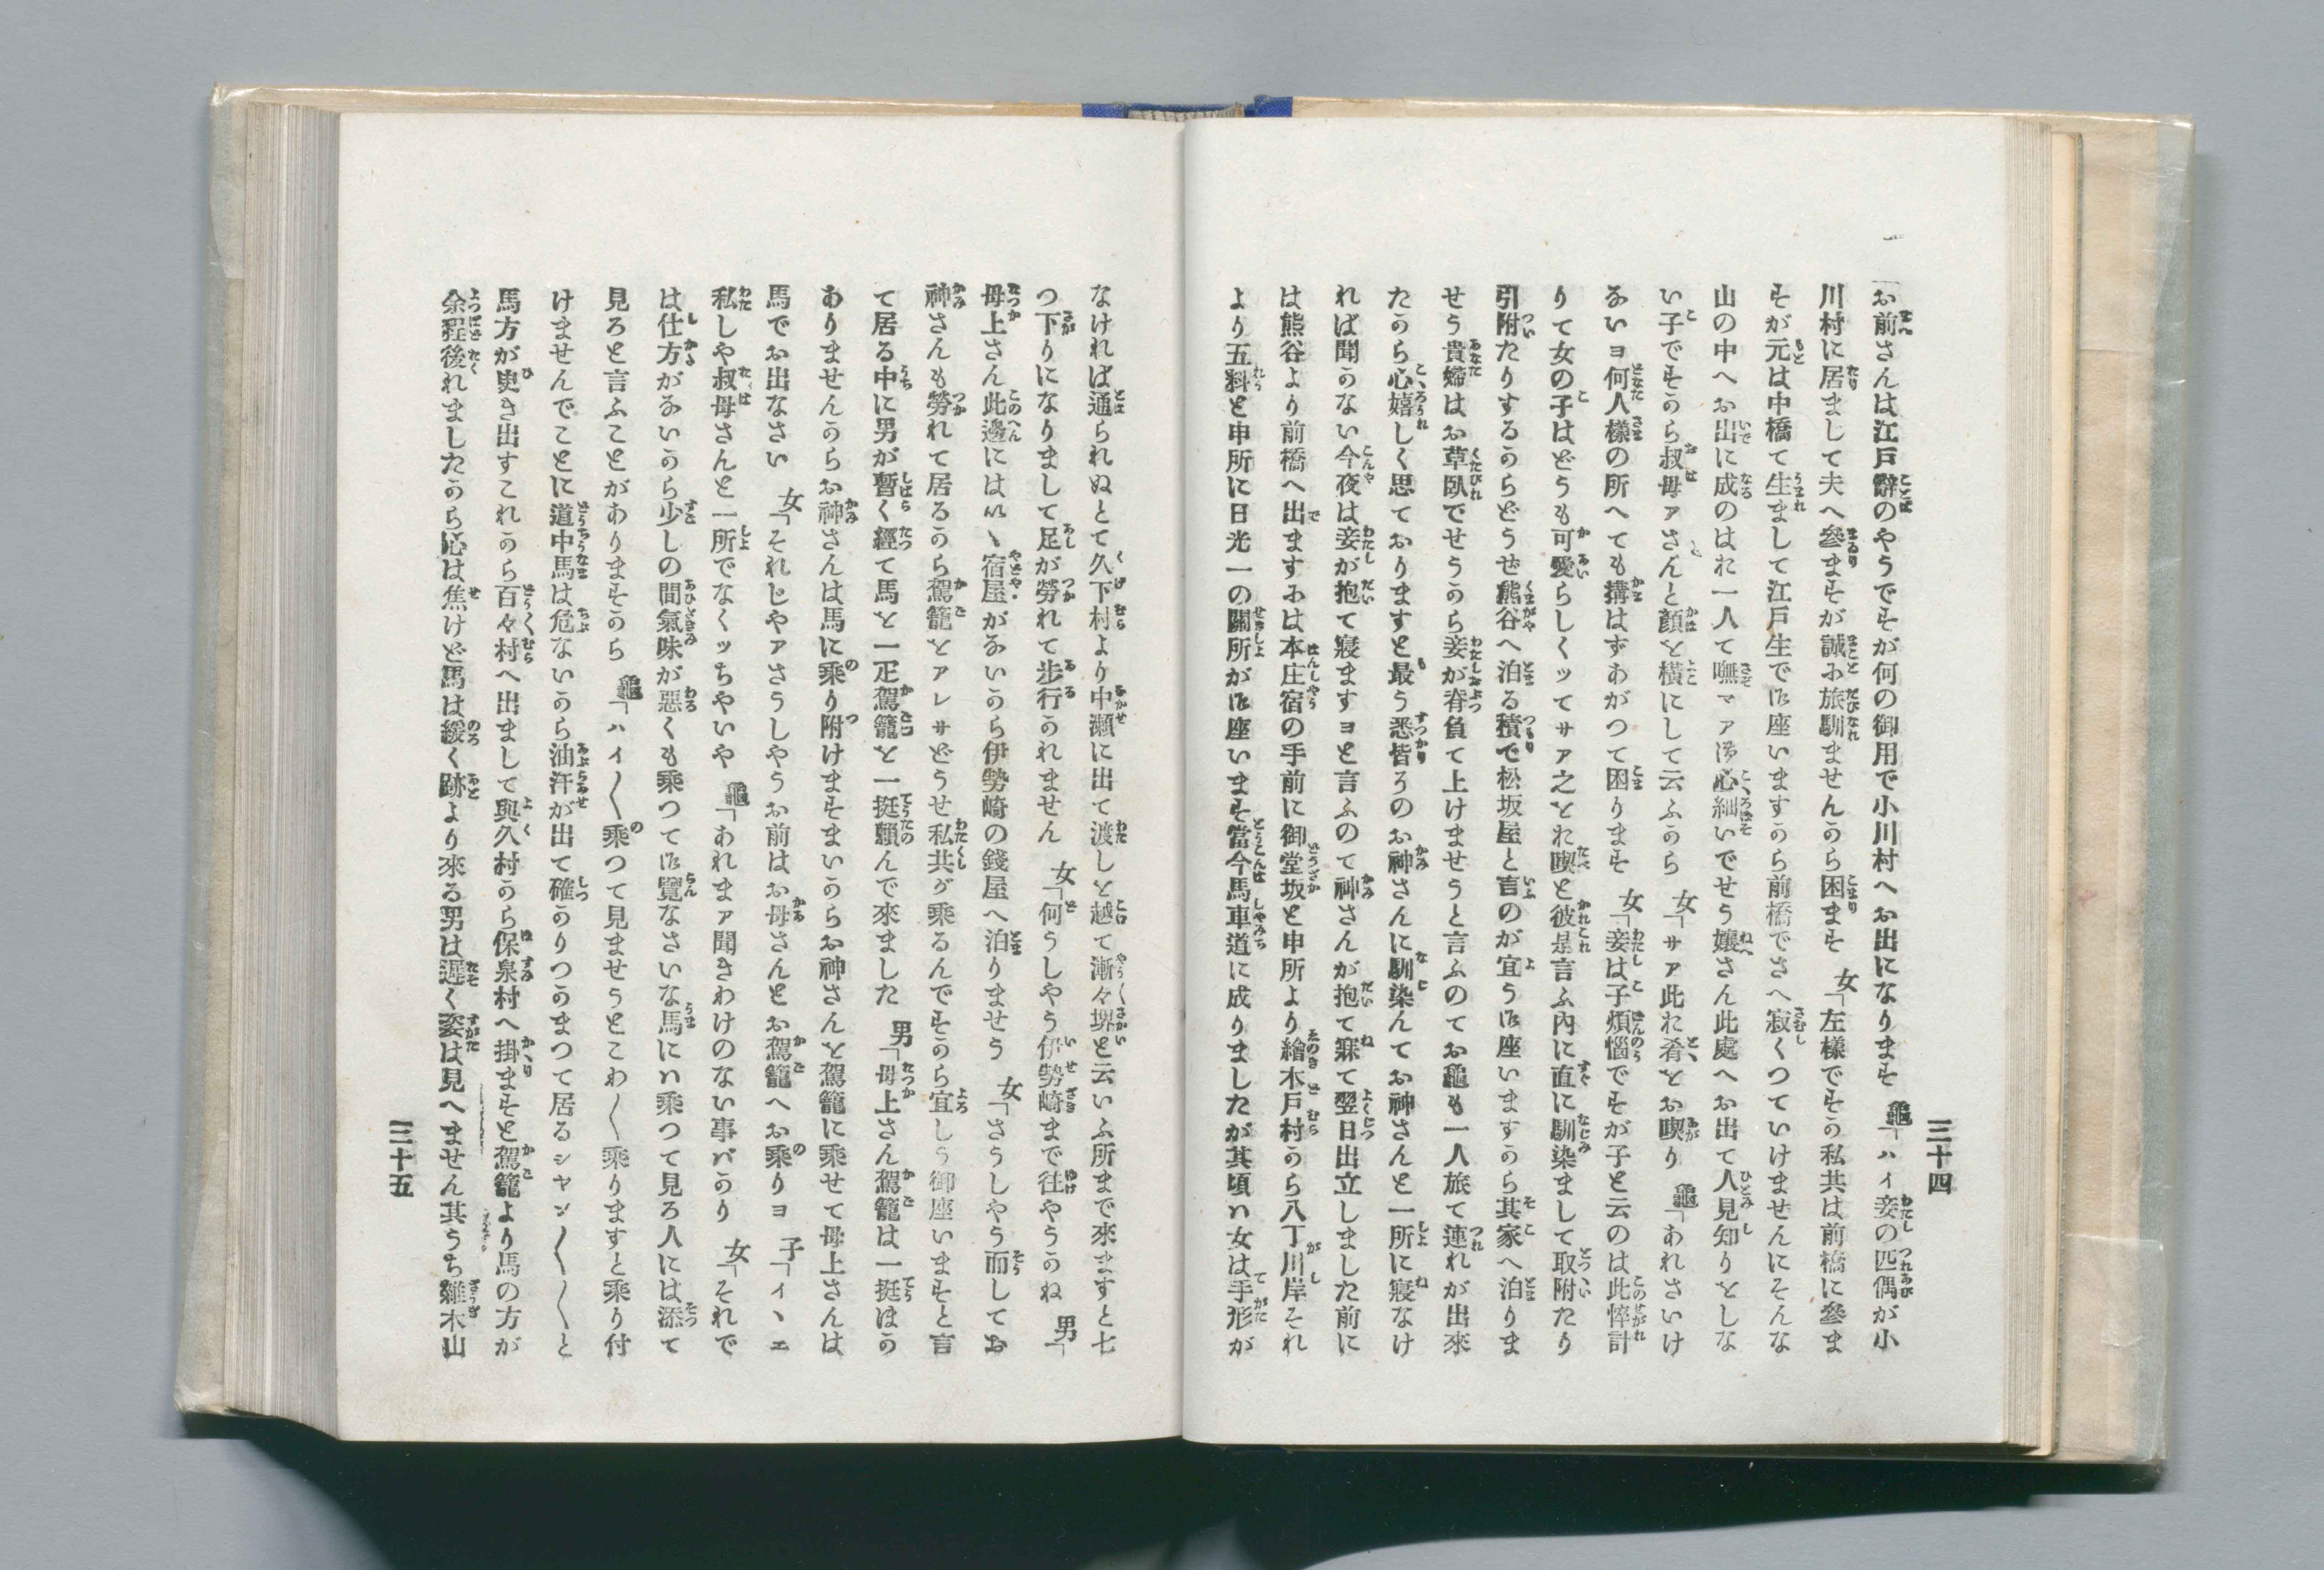 三十四
「お前さんは江戸辭のやうですが何の御用で小川村へお出になります 龜「ハイ妾の匹偶が小
川村に居まして夫へ參ますが誠に旅馴ませんから困ます 女「左樣ですか私共は前橋に參ま
すが元は中橋で生まして江戸生で御座いますから前橋でさへ寂くつていけませんにそんな
山の中へお出に成のはお一人で嘸マア御心細いでせう孃さん此處へお出で人見知りをしな
い子ですから叔母アさんと顏を横にして云ふから 女「サア此お肴をお喫り 龜「あれさいけ
ないヨ何人樣の所へても搆はずあがつて困ります 女「妾は子煩惱ですが子と云のは此悴計
りて女の子はどうも可愛らしくッてサア之をお喫と彼是言ふ内に直に馴染まして取附たり
引附たりするからどうせ熊谷へ泊る積で松坂屋と言のが宜う御座いますから其家へ泊りま
せう貴婦はお草臥でせうから妾が脊負て上けませうと言ふのてお龜も一人旅て連れが出來
たから心嬉しく思ておりますと最う悉皆ろのお神さんに馴染んてお神さんと一所に寢なけ
れば聞かない今夜は妾が抱て寢ますヨと言ふのて神さんが抱て寐て翌日出立しました前に
は熊谷より前橋へ出ますには本庄宿の手前に御堂坂と申所より繪木戸村から八丁川岸それ
より五料と申所に日光一の關所が御座います當今馬車道に成りましたが其頃ハ女は手形が
なければ通られぬとて久下村より中瀬に出て渡しを越て漸々堺と云いふ所まで來ますと七
つ下りになりまして足が勞れて歩行かれません 女「何うしやう伊勢崎まで往やうかね 男「
母上さん此邊にはいゝ宿屋がないから伊勢崎の錢屋へ泊りませう 女「さうしやう而してお
神さんも勞れて居るから駕籠とアレサどうせ私共が乘るんですから宜しう御座いますと言
て居る中に男が暫く經て馬を一疋駕籠を一挺頼んで來ました 男「母上さん駕籠は一挺ほか
ありませんからお神さんは馬に乘り附けますまいからお神さんを駕籠に乘せて母上さんは
馬でお出なさい 女「それじやアさうしやうお前はお母さんとお駕籠へお乘りヨ 子「イヽエ
私しや叔母さんと一所でなくッちやいや 龜「あれまア聞きわけのない事バかり 女「それで
は仕方がないから少しの間氣味が惡くも乘つて御覽なさいな馬にハ乘つて見ろ人には添て
見ろと言ふことがありますから 龜「ハイ〳〵乘つて見ませうとこわ〳〵乘りますと乘り付
けませんでことに道中馬は危ないから油汗が出て確かりつかまつて居るシヤン〳〵〳〵と
馬方が曳き出すこれから百々村へ出まして與久村から保泉村へ掛ますと駕籠より馬の方が
余程後れましたから心は焦けど馬は緩く跡より來る男は遲く姿は見へません其うち雜木山
三十五